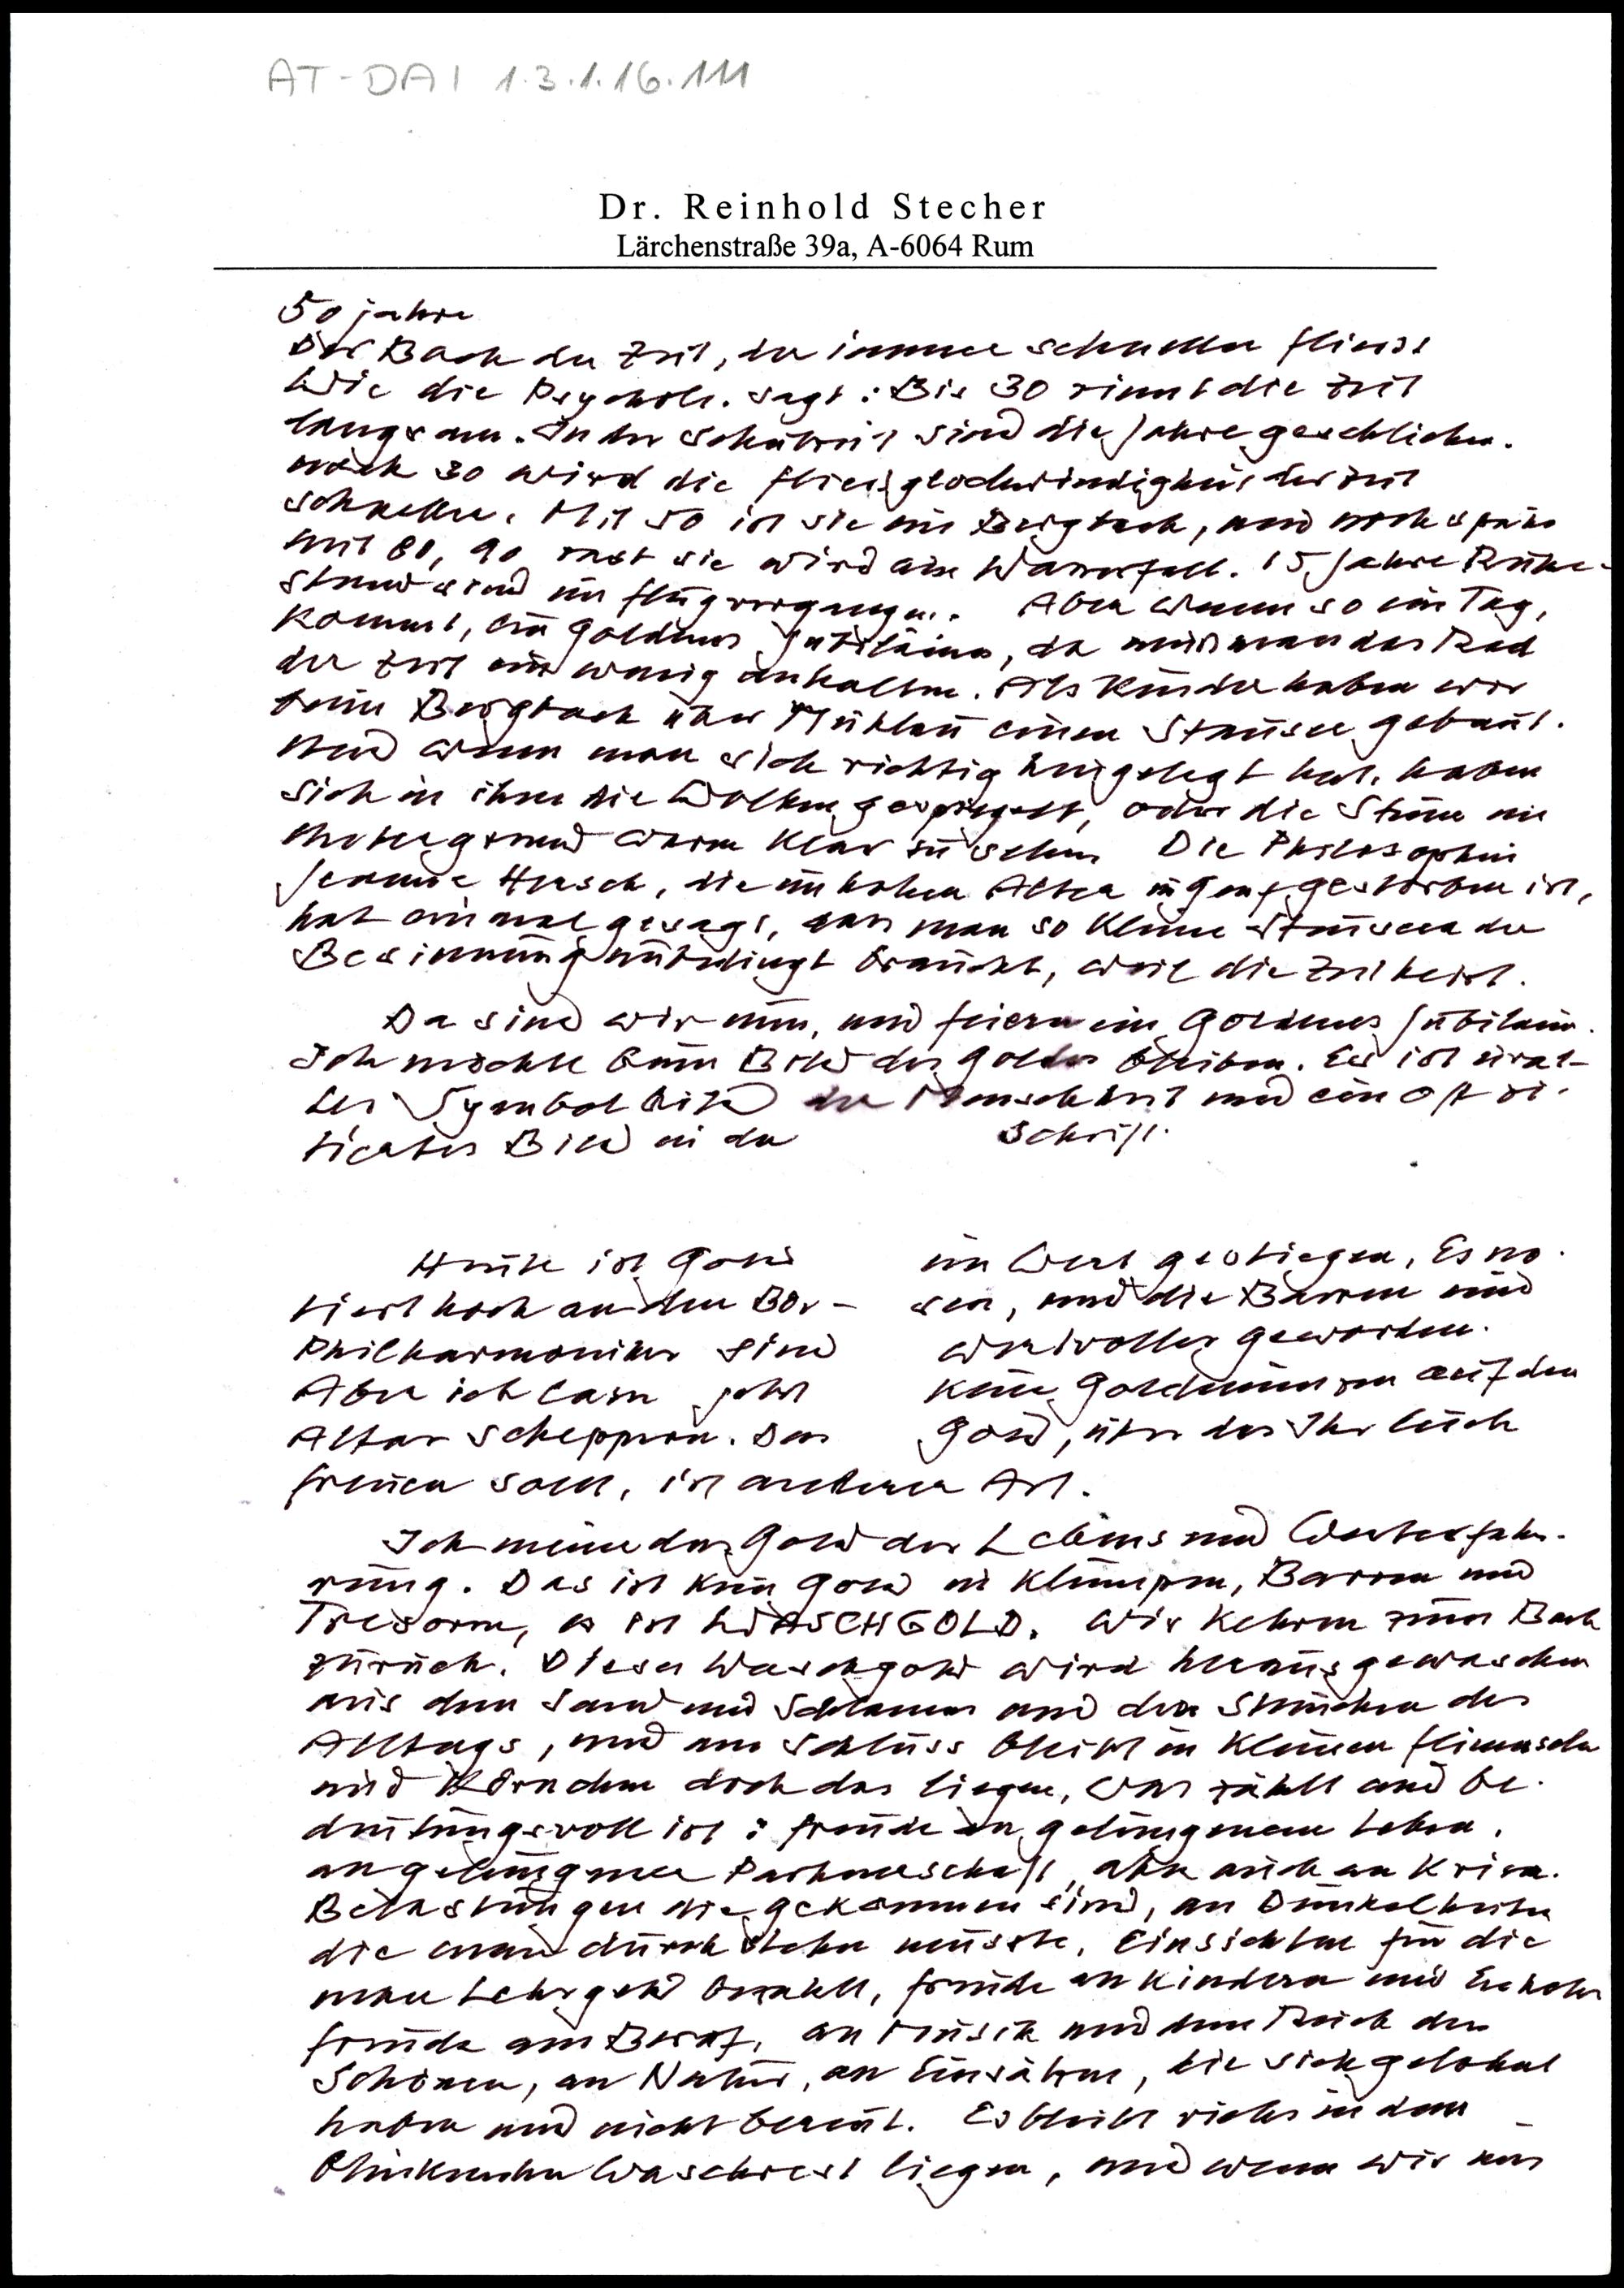 AT-DAI 1.3.1.16.111
Dr. Reinhold Stecher
Lärchenstraße 39a, A-6064 Rum
50 jahre
Der Bach der Zeit, der immer schneller fliesst
Wie die Psychole. sagt: Bis 30 rinnt die Zeit
langsam. In der Schulzeit sind die Jahre geschlichen.
nach 30 wird die fliessgeschwindigkeit der Zeit
schneller. Mit 50 ist sie ein Bergbach, und noch später
mit 80, 90 rast sie wird ein Wasserfall. 15 Jahre Ruhe-
stand sind im flug vergangen. Aber wenn so ein Tag,
kommt, ein goldenes Jubiläum, da muss man das Rad
der Zeit ein wenig anhalten. Als Kinder haben wir
beim Bergbach über Mühlau einen Stausee gebaut.
Und wenn man sich richtig hingelegt hat, haben
sich in ihm die Wolken gespiegelt, oder die Steine im
Untergrund waren klar zu sehen Die Philosophin
Jeanne Hersch, die im hohen Alter in Genf gestorben ist,
hat einmal gesagt, dass man so kleine Stauseen der
Besinnung unbedingt braucht, weil die Zeit
Da sind wir nun, und feiern ein Goldenes Jubiläum.
Ich möchte beim Bild des Goldes bleiben. Es ist ural-
tes Symbolbild der Menschheit und ein oft zi-
tiertes Bild in der Schrift.
Heute ist Gold im Wert gestiegen, Es no-
tiert hoch an den Bör- sen, und die Barren und
Philharmoniker sind wertvoller geworden.
Aber ich lasse jetzt keine Goldmünzen auf den
Altar scheppern. Das Gold, über das Ihr Euch
freuen sollt, ist anderer Art.
Ich meine das Gold der Lebens und Werterfah-
rung. Das ist kein Gold in Klumpen, Barren und
Tresoren, es ist WASCHGOLD. Wir kehren zum Bach
zurück. Dieses Waschgold wird herausgewaschen
aus dem Sand und Schlamm und den Steinchen des
Alltags, und am Schluss bleibt in kleinen flimmseln
und Körnchen doch das liegen, was zählt und be-
deutungsvoll ist: freude an gelungenem Leben,
an gelungener Partnerschaft, aber auch an Krisen.
Belastungen die gekommen sind, an Dunkelheiten
die man durchstehen musste, Einsichten für die
man Lehrgeld bezahlt, freude an Kindern und Enkeln
freude am Beruf, an Musik und dem Reich des
Schönen, an Natur, an Einsätzen, die sich gelohnt
haben und nicht bereut. Es bleibt vieles in dem
blinkenden Waschrest liegen, und wenn wir uns